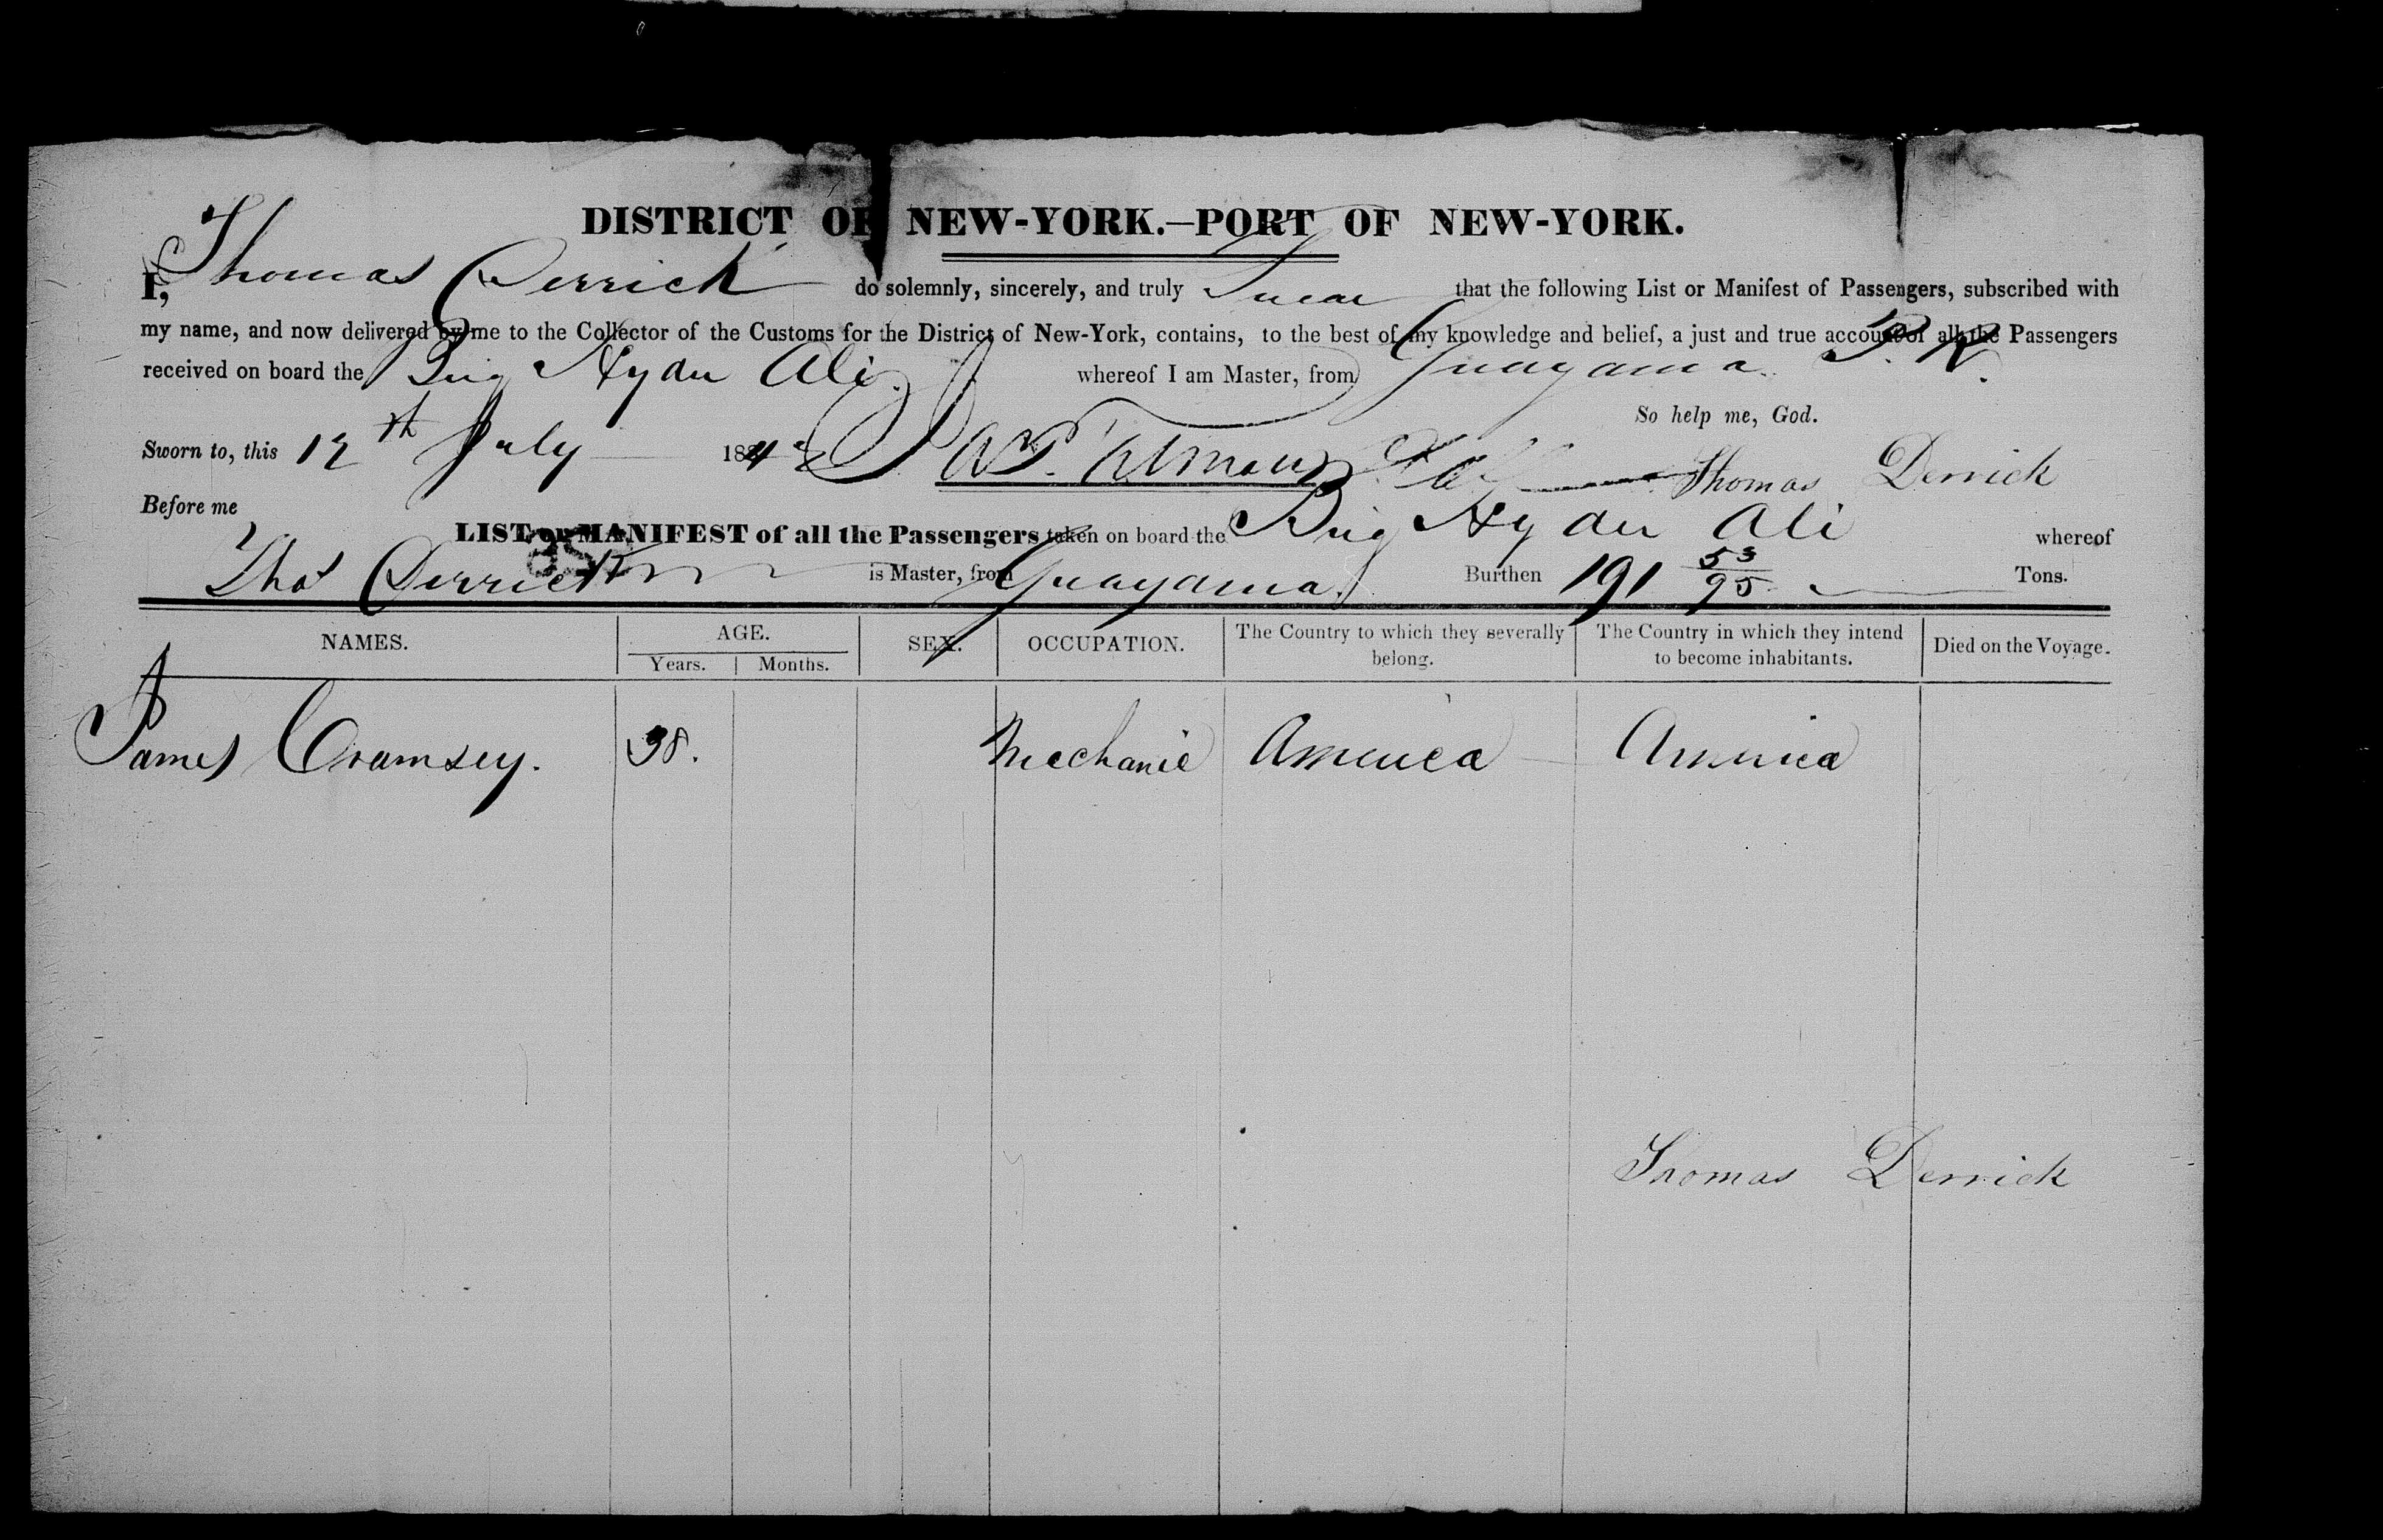 DISTRICT OF NEW-YORK.—PORT OF NEW-YORK.
I, Thomas Derrick do solemnly, sincerely, and truly Swear that the following List or Manifest of Passengers, subscribed with
my name, and now delivered by me to the Collector of the Customs for the District of New-York, contains, to the best of my knowledge and belief, a just and true account of all the Passengers
received on board the Brig Hyder Ali. whereof I am Master, from Guayama. P. R.
So help me, God.
Sworn to, this 12th July 1842 Thomas Derrick
Before me
LIST or MANIFEST of all the Passengers taken on board the Brig Hyder Ali whereof
Thos Derrick is Master, from Guayama. Burthen 191 53/95 Tons.
NAMES. AGE. SEX. OCCUPATION. The Country to which they severally belong. The Country in which they intend to become inhabitants. Died on the Voyage.
Years. Months.
James Cramsey. 38. Mechanic America America
Thomas Derrick